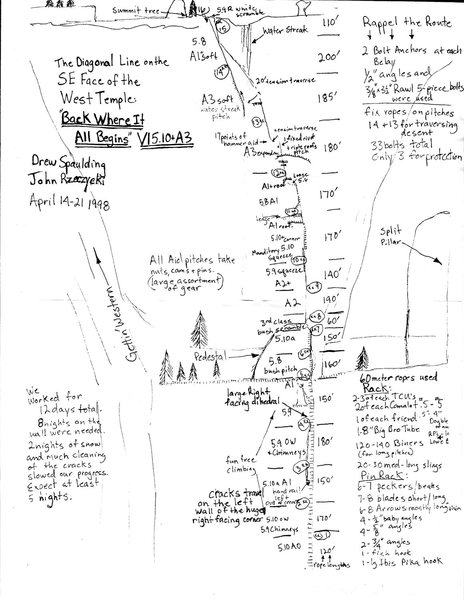 Summit tree
5.9 R white
scramble
15
110'
Water Streak
Rappel the Route
2 Bolt Anchors at each
Belay
1/2" angles and
3/8" x 3 1/2" Rawl 5-piece bolts
were used
fix ropes/on pitches
14 + 13 for traversing
descent
33 bolts total
only 3 for protection
The Diagonal Line on the
SE Face of the
West Temple:
"Back Where It
All Begins" VI 5.10+ A3
Drew Spaulding
John Rzeczycki
April 14-21 1998
5.8
A1 Soft
200'
20' tension traverse
A3 soft
water streak
pitch
185'
17 points of
hammer aid
tension traverse
A3 expanding
pitch
180'
A1 roof
5.8 A1
180'
ledge
A1 roof
5.10+ corner
Manditory 5.10
squeeze
170'
5.9 squeeze
A2+
140'
A2
190'
3rd class
bush scramble
60'
5.10a
150'
5.8
bush pitch
160'
All Aid pitches take
nuts, cams + pins.
(large assortment
of gear
Split
Pillar
Gettin' Western
Pedestal
A1
large Right
facing dihedral
150'
5.9
5.9 OW
+ Chimneys
180'
fun free
climbing
5.10a A1
hand rail
left
150'
cracks travel
on the left
wall of the huge
right facing corner
5.10 OW
5.9 Chimneys
170'
5.10 A0
120'
rope lengths
we
worked for
12 days total.
8 nights on the
wall were needed.
2 nights of snow
and much cleaning
of the cracks
slowed our progress.
Expect at least
5 nights.
60 meter ropes used
Rack:
2-3 of each TCU's
2 of each Camalot .5 - 5
1 of each friend
1.8" Big Bro Tube
120-140 Biners
(for long pitches)
20-30 med-long slings
Pin Rack
6-7 peckers/beaks
7-8 blades short/long
6-8 Arrows mostly long/thin
4- 1/2" baby angles
4- 5/8" angles
2- 3/4" angles
1- fish hook
1- lg Ibis Pika hook